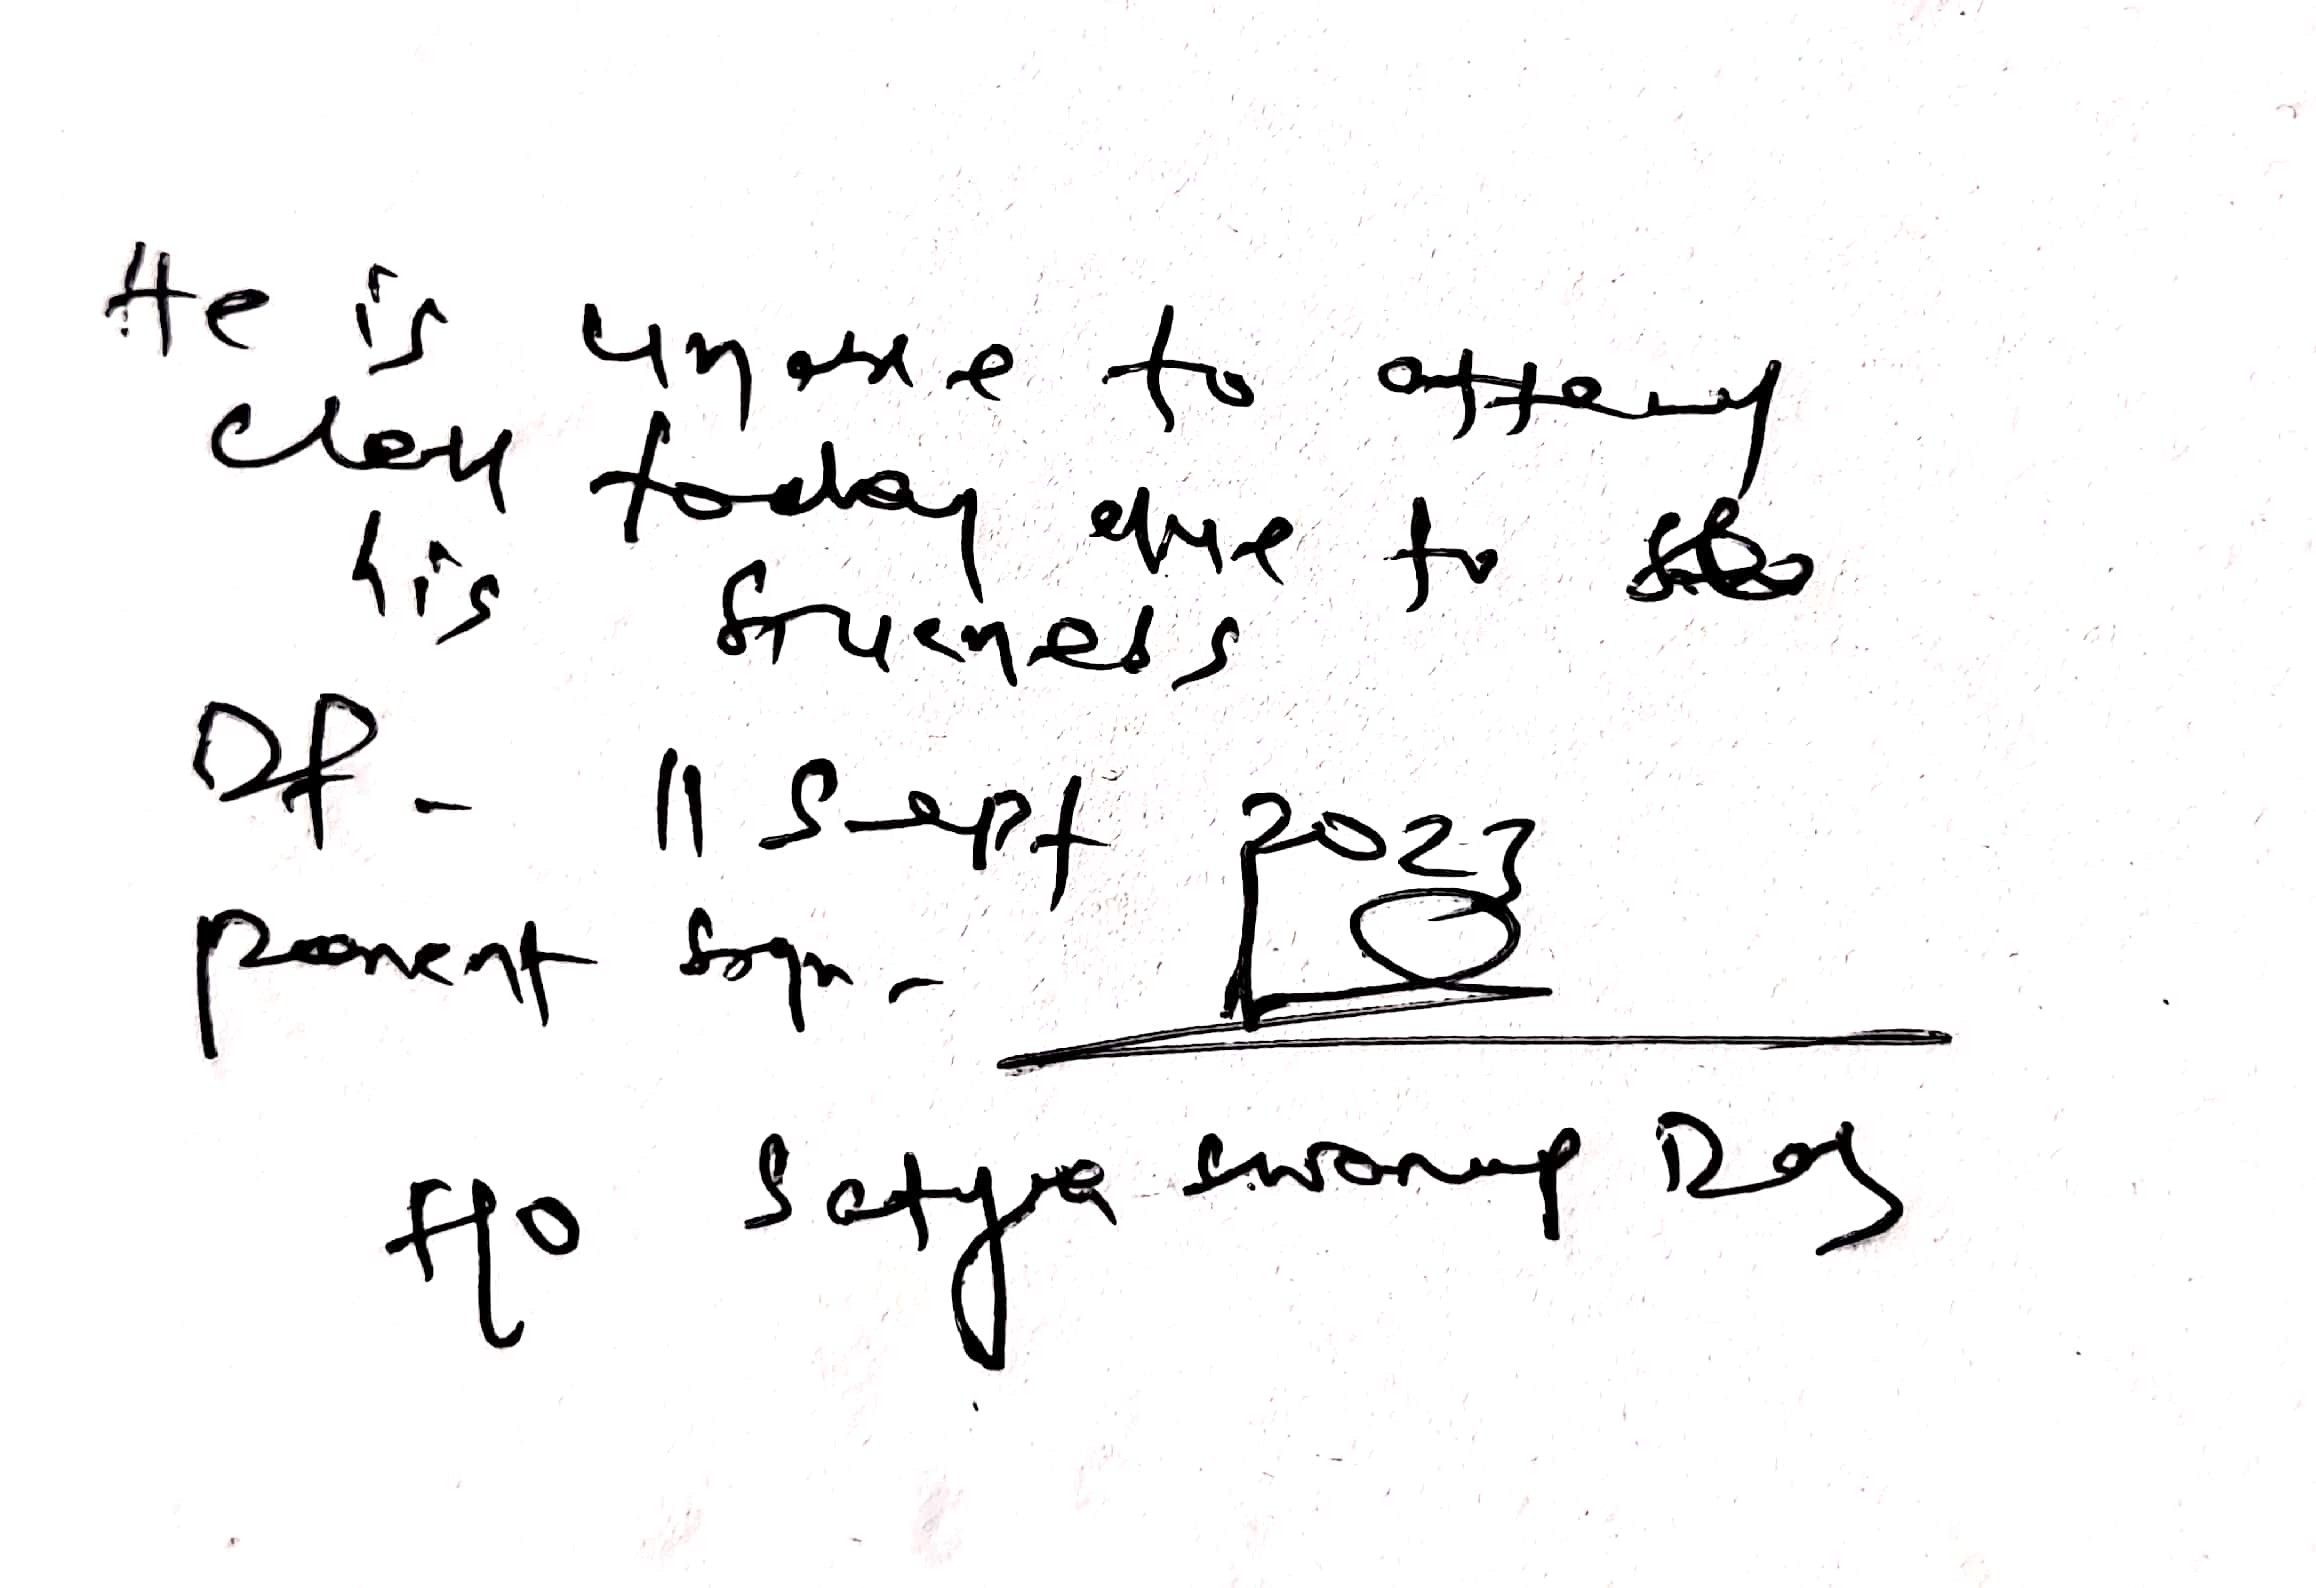 He is unable to attend
class today due to
his sickness
Dt - 11 Sept 2023
parent sign -
F/o Satya swarup Das